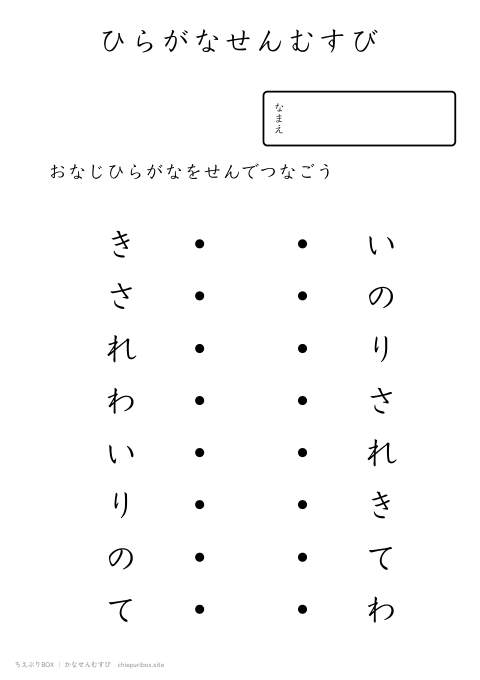 ひらがなせんむすび
なまえ
おなじひらがなをせんでつなごう
き ● ● い
さ ● ● の
れ ● ● り
わ ● ● さ
い ● ● れ
り ● ● き
の ● ● て
て ● ● わ
ちえぷりBOX | かなせんむすび chiepuribox.site